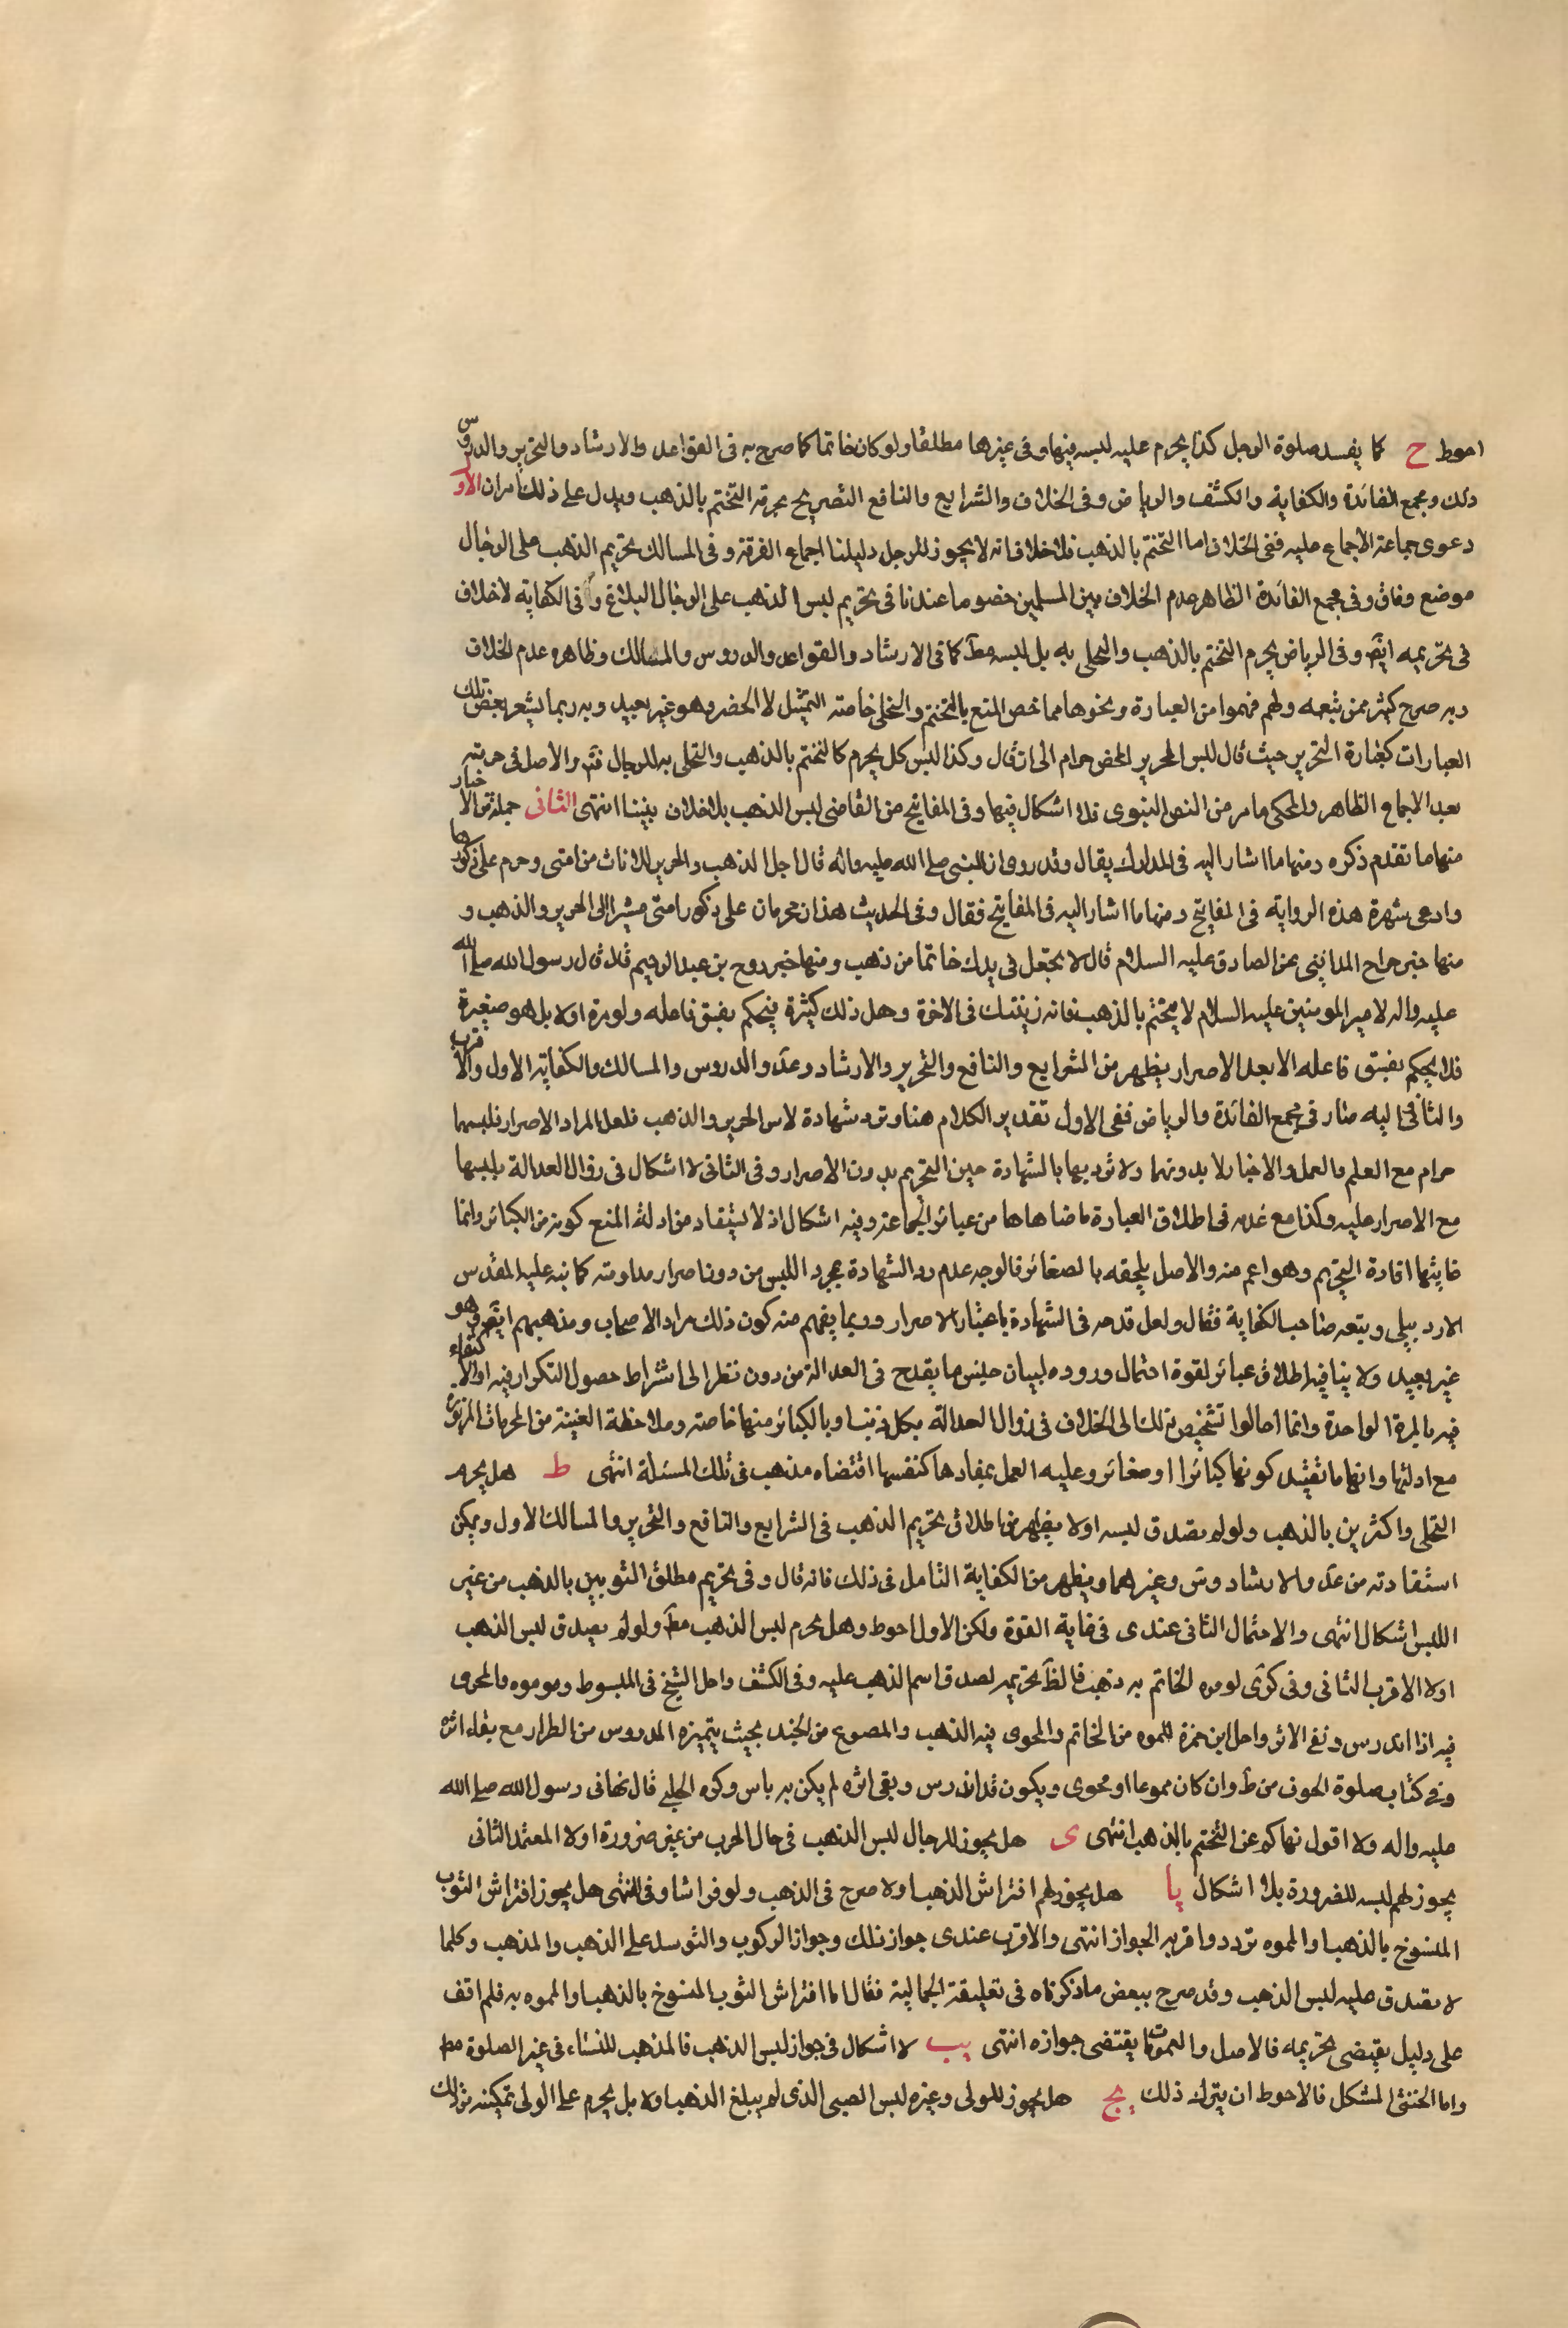 احوط ح كما يفسد صلوة الرجل كذا يحرم عليه لبسه فيها وفى غيرها مطلقا ولو كان خاتما كما صرح به فى القواعد والارشاد والتحرير والدروس
ذلك ومجمع الفائدة والكفاية والكشف والرياض وفى الخلاف والشرايع والنافع التصريح بحرمة التختم بالذهب ويدل على ذلك امران الاول
دعوى جماعة الاجماع عليه ففى الخلاف اما التختم بالذهب فلا خلاف انه لا يجوز للرجل دليلنا اجماع الفرقة وفى المسالك تحريم الذهب على الرجال
موضع وفاق وفى مجمع الفائدة الظاهر عدم الخلاف بين المسلمين خصوما عندنا فى تحريم لبس الذهب على الرجال البلاغ وفى الكفاية لا خلاف
فى تحريمه ايضا وفى الرياض يحرم التختم بالذهب والتحلى به بل لبسه مط كما فى الارشاد والقواعد والدروس والمسالك وظاهره عدم الخلاف
وبه صرح كثير ممن تبعه ولهم فهموا من العبارة ونحوها مما خص المنع بالتختم والتحلى خاصة التمثيل لا الحصر وهو غير بعيد وبه ربما يشعر بعض تلك
العبارات كعبارة التحرير حيث قال لبس الحرير المحض حرام الى ان قال وكذا لبس كل يحرم كالتختم بالذهب والتحلى به للرجال فتر والاصل فى حرمته
بعد الاجماع الظاهر والمحكى ما مر من النص النبوى فلا اشكال فيها وفى المفاتيح من القاضى لبس الذهب بلا خلاف بيننا انتهى الثانى جملة من الاخبار
منها ما تقدم ذكره ومنها ما اشار اليه فى المدارك يقال وقد روى ان النبى صلى الله عليه واله قال احل الذهب والحرير للاناث من امتى وحرم على ذكورها
وادعى شهرة هذه الرواية فى المفاتيح ومنها ما اشار اليه فى المفاتيح فقال وفى الحديث هذان محرمان على ذكور امتى مشيرا الى الحرير والذهب و
منها خبر جراح المداينى عن الصادق عليه السلام قال لا تجعل فى يدك خاتما من ذهب ومنها خبر روح بن عبد الرحيم قال قال رسول الله صلى الله
عليه واله لامير المومنين عليه السلام لا تختم بالذهب فانه زينتك فى الاخرة وهل ذلك كبيرة فيحكم بفسق فاعله ولو مرة اولا بل هو صغيرة
فلا يحكم بفسق فاعله الا بعد الاصرار يظهر من الشرايع والنافع والتحرير والارشاد وعد والدروس والمسالك والكفاية الاول والاقرب
والثانى اليه صار فى مجمع الفائدة والرياض ففى الاول تقدير الكلام هنا وترد شهادة لابس الحرير والذهب فلعل المراد الاصرار فلبسهما
حرام مع العلم والعمل والاخبار لا بدونهما ولا ترد بها بالشهادة حين التحريم بدون الاصرار وفى الثانى لا اشكال فى زوال العدالة بلبسها
مع الاصرار عليه وكذا مع عدمه فى اطلاق العبارة ما ضاهاها من عبائر الجماعة وفيه اشكال اذ لا يستفاد من ادلة المنع كونه من الكبائر وانما
غايتها افادة التحريم وهو اعم منه والاصل يلحقه بالصغائر فالوجه عدم رد الشهادة بمجرد اللبس من دون اصرار مداومته كما نبه عليه المقدس
الاردبيلى ويتبعه صاحب الكفاية فقال ولعل قدحه فى الشهادة باعتبار الاصرار وربما يفهم منه كون ذلك مراد الاصحاب ومذهبهم ايضا وهو
غير بعيد ولا ينافيه اطلاق عبائر لقوة احتمال وروده لبيان جنس ما يقدح فى العدالة من دون نظر الى اشتراط حصول التكرار فيه او الاكتفاء
فيه بالمرة الواحدة وانما احالوا تشخيص ذلك الى الخلاف فى زوال العدالة بكل ذنب او بالكبائر منها خاصة وملاحظة العينة من المحرمات المزبورة
مع ادلتها وانها ما تفيد كونها كبائرا او صغائر وعليه العمل بمفادها كنفسها اقتضاه مذهب فى تلك المسئلة انتهى ط هل يحرم
التحلى واكثرين بالذهب ولو لم يصدق لبسه اولا يظهر من اطلاق تحريم الذهب فى الشرايع والنافع والتحرير والمسالك الاول ويمكن
استفادته من عد والارشاد وس وغيرهما ويظهر من الكفاية التامل فى ذلك فانه قال وفى تحريم مطلق التزيين بالذهب من غير
اللبس اشكال انتهى والاحتمال الثانى عندى فى غاية القوة ولكن الاول احوط وهل يحرم لبس الذهب مط ولو لم يصدق لبس الذهب
اولا الاقرب الثانى وفى كرى لو موه الخاتم به ذهب فالظ تحريمه لصدق اسم الذهب عليه وفى الكشف واحل الشيخ فى المبسوط ومموه والمجرى
فيه اذا اندرس ونفى الاثر واحل ابن حمزة المموه من الخاتم والمجرى فيه الذهب والمصوغ من الجند بحيث يتميزه المدروس من الطراز مع بقاء اثره
وفى كتاب صلوة الخوف من ط وان كان مموها او مجرى ويكون قد اندرس وبقى اثره لم يكن به باس وكره الحلبى قال نهانى رسول الله صلى الله
عليه واله ولا اقول نهاكم عن التختم بالذهب انتهى ى هل يجوز للرجال لبس الذهب فى حال الحرب من غير ضرورة اولا المعتمد الثانى
يجوز لهم لبسه للضرورة بلا اشكال يا هل يجوز لهم افتراش الذهب اولا صرح فى الذهب ولو فراشا وفى المنتهى هل يجوز افتراش الثوب
المنسوخ بالذهب او المموه تردد واقربه الجواز انتهى والاقرب عندى جواز ذلك وجواز الركوب والتوسد على الذهب والمذهب وكلما
لا يصدق عليه لبس الذهب وقد صرح ببعض ما ذكرناه فى تعليقة الجمالية فقال اما افتراش الثوب المنسوخ بالذهب او المموه به فلم اقف
على دليل يقتضى تحريمه فالاصل والعمومات يقتضى جوازه انتهى يب لا اشكال فى جواز لبس الذهب فالمذهب للنساء فى غير الصلوة مط
واما الخنثى المشكل فالاحوط ان يترك ذلك يج هل يجوز للولى وغيره لبس الصبى الذى لم يبلغ الذهب اولا بل يحرم على الولى تمكينه من ذلك